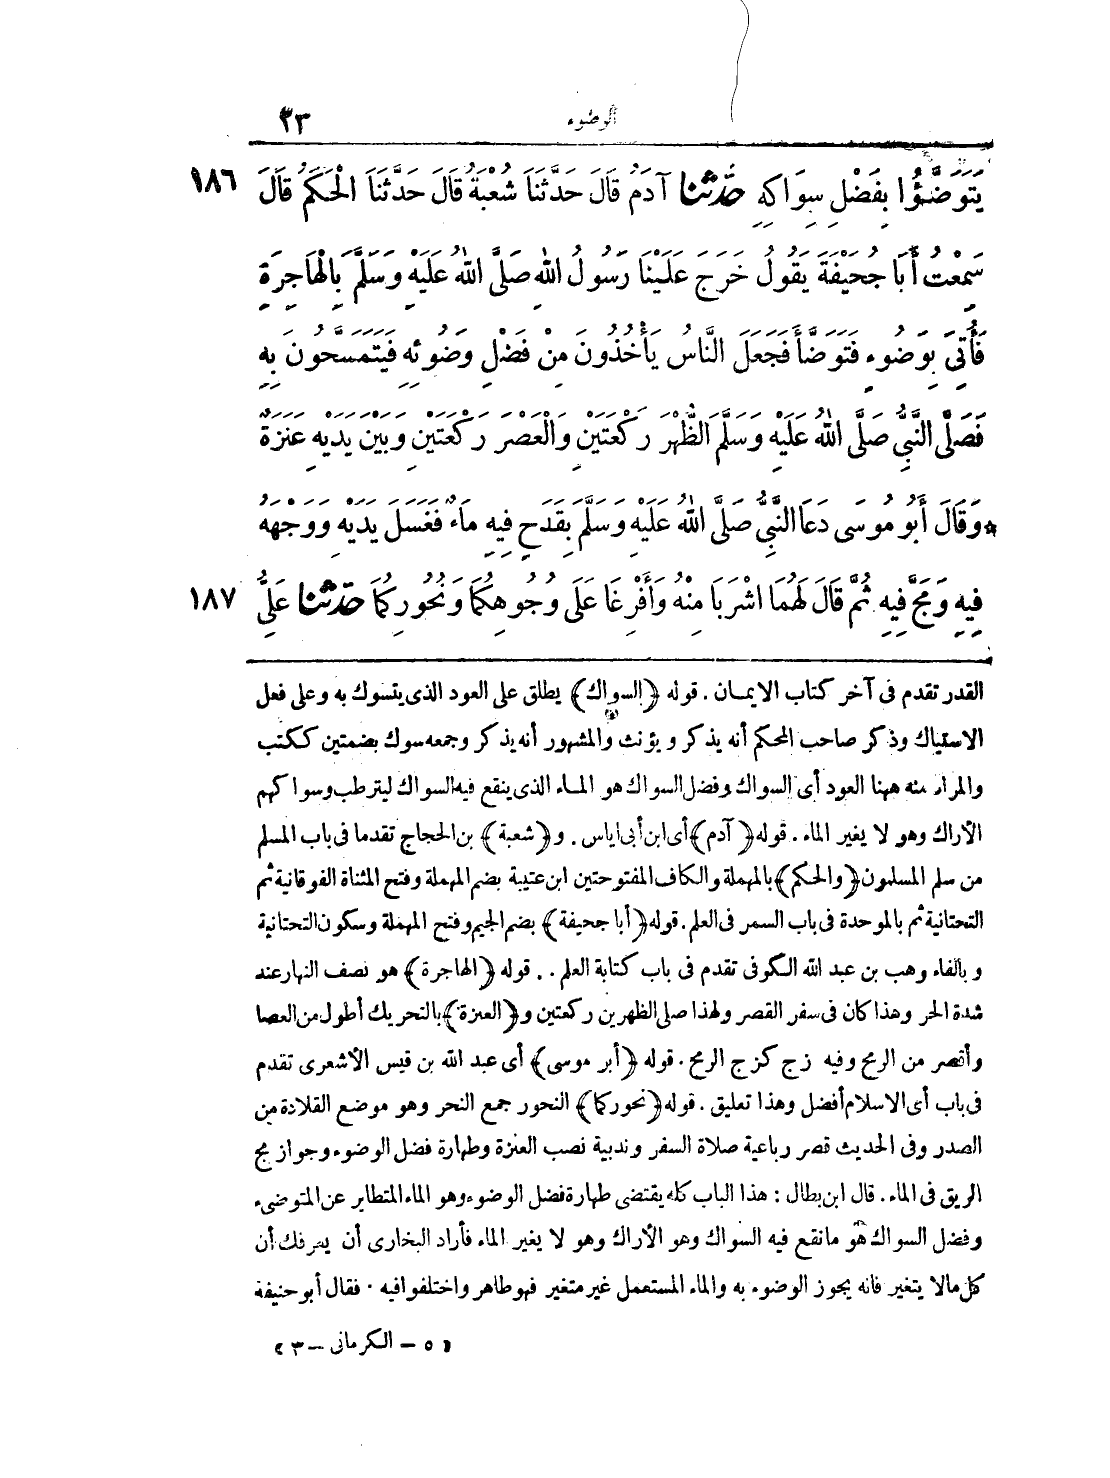 الوضوء ٣٣
يَتَوَضَّؤُا بِفَضْلِ سِوَاكِهِ حَدَّثَنَا آدَمُ قَالَ حَدَّثَنَا شُعْبَةُ قَالَ حَدَّثَنَا الْحَكَمُ قَالَ ١٨٦
سَمِعْتُ أَبَا جُحَيْفَةَ يَقُولُ خَرَجَ عَلَيْنَا رَسُولُ اللّٰهِ صَلَّى اللّٰهُ عَلَيْهِ وَسَلَّمَ بِالْهَاجِرَةِ
فَأُتِىَ بِوَضُوءٍ فَتَوَضَّأَ فَجَعَلَ النَّاسُ يَأْخُذُونَ مِنْ فَضْلِ وَضُوئِهِ فَيَتَمَسَّحُونَ بِهِ
فَصَلَّى النَّبِىُّ صَلَّى اللّٰهُ عَلَيْهِ وَسَلَّمَ الظُّهْرَ رَكْعَتَيْنِ وَالْعَصْرَ رَكْعَتَيْنِ وَبَيْنَ يَدَيْهِ عَنَزَةٌ
* وَقَالَ أَبُو مُوسَى دَعَا النَّبِىُّ صَلَّى اللّٰهُ عَلَيْهِ وَسَلَّمَ بِقَدَحٍ فِيهِ مَاءٌ فَغَسَلَ يَدَيْهِ وَوَجْهَهُ
فِيهِ وَمَجَّ فِيهِ ثُمَّ قَالَ لَهُمَا اشْرَبَا مِنْهُ وَأَفْرِغَا عَلَى وُجُوهِكُمَا وَنُحُورِكُمَا حَدَّثَنَا عَلِىُّ ١٨٧
القدر تقدم فى آخر كتاب الايمان . قوله ﴿السواك﴾ يطلق على العود الذى يتسوك به وعلى فعل
الاستياك وذكر صاحب المحكم أنه يذكر ويؤنث والمشهور أنه يذكر وجمعه سوك بضمتين ككتب
والمراد منه ههنا العود أى السواك وفضل السواك هو الماء الذى ينقع فيه السواك ليترطب وسواكهم
الأراك وهو لا يغير الماء . قوله ﴿آدم﴾ أى ابن أبى اياس . و﴿شعبة﴾ بن الحجاج تقدما فى باب المسلم
من سلم المسلمون ﴿والحكم﴾ بالمهملة والكاف المفتوحتين ابن عتيبة بضم المهملة وفتح المثناة الفوقانية ثم
التحتانية ثم بالموحدة فى باب السمر فى العلم . قوله ﴿أبا جحيفة﴾ بضم الجيم وفتح المهملة وسكون التحتانية
وبالفاء وهب بن عبد الله الكوفى تقدم فى باب كتابة العلم . . قوله ﴿الهاجرة﴾ هو نصف النهار عند
شدة الحر وهذا كان فى سفر القصر ولهذا صلى الظهرين ركعتين و﴿العنزة﴾ بالتحريك أطول من العصا
وأقصر من الرمح وفيه زج كزج الرمح . قوله ﴿أبو موسى﴾ أى عبد الله بن قيس الأشعرى تقدم
فى باب أى الاسلام أفضل وهذا تعليق . قوله ﴿نحوركما﴾ النحور جمع النحر وهو موضع القلادة من
الصدر وفى الحديث قصر رباعية صلاة السفر وندبية نصب العنزة وطهارة فضل الوضوء وجواز مج
الريق فى الماء . قال ابن بطال : هذا الباب كله يقتضى طهارة فضل الوضوء وهو الماء المتطاير عن المتوضىء
وفضل السواك هو ما نقع فيه السواك وهو الأراك وهو لا يغير الماء فأراد البخارى أن يعرفك أن
كل مالا يتغير فانه يجوز الوضوء به والماء المستعمل غير متغير فهو طاهر واختلفوا فيه . فقال أبو حنيفة
﴿ ٥ – الكرمانى – ٣ ﴾